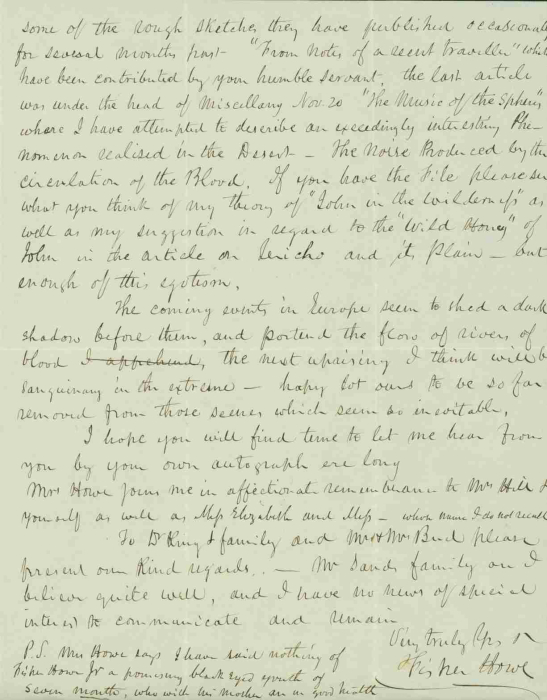 some of the rough sketches they have published occasionall
for several months past - "From Notes of a recent traveller" whi
have been contributed by your humble servant, the last article
was under the head of Miscellany Nov. 20 "The Music of the Spheres"
where I have attempted to describe an exceedingly interesting Phe-
nomenon realised in the Desert - The Noise Produced by the
circulation of the Blood. If you have the File please
what you think of my theory of "John in the Wilderness" as
well as my suggestion in regard to the "Wild Honey" of
John in the article on Jericho and its Plain - but
enough of this egotism.
The coming events in Europe seem to shed a dark
shadow before them, and portend the flow of rivers of
blood I apprehend, the next uprising I think will b
sanguinary in the extreme - happy lot ours to be so far
removed from those scenes which seem so inevitable.
I hope you will find time to let me hear from
you by your own autograph ere long
Mrs Howe joins me in affectionate remembrance to Mrs Hill &
yourself as well as Miss Elizabeth and Miss - whose name I do not recall
To Dr King & family and Mr & Mrs please
present our Kind regards. - Mr Sands family are I
believe quite well, and I have no news of special
interest to communicate and remain
Very truly Yrs
Fisher Howe
P.S. Mrs Howe says I have said nothing of
Fisher Howe Jr a promising black eyed youth of
seven months, who with his mother are in good health